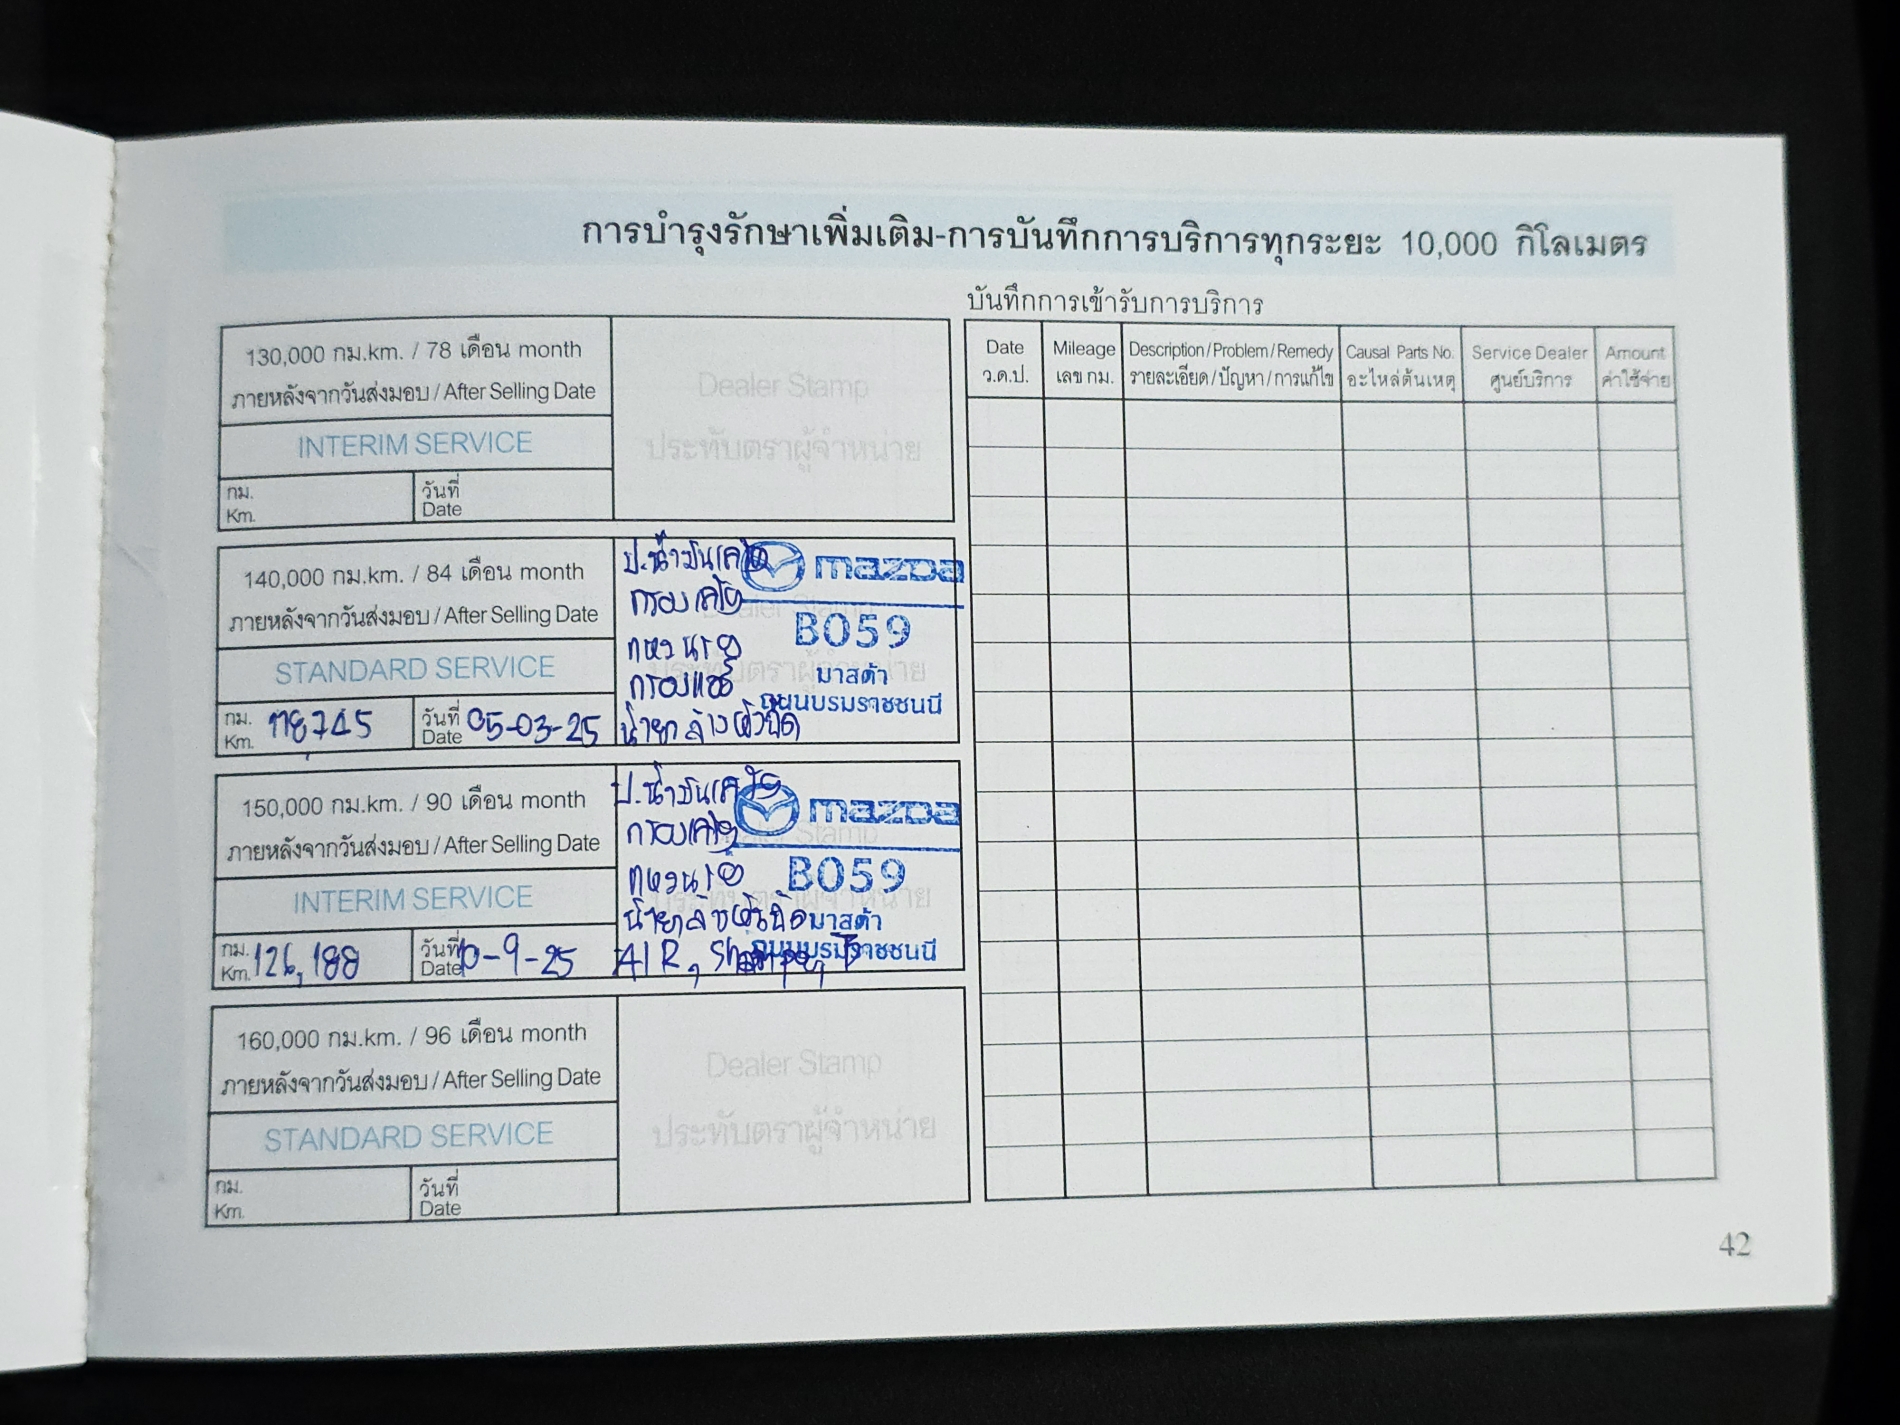 การบำรุงรักษาเพิ่มเติม-การบันทึกการบริการทุกระยะ 10,000 กิโลเมตร
130,000 กม.km. / 78 เดือน month
ภายหลังจากวันส่งมอบ / After Selling Date
INTERIM SERVICE
กม.
Km.
วันที่
Date
Dealer Stamp
ประทับตราผู้จำหน่าย
140,000 กม.km. / 84 เดือน month
ภายหลังจากวันส่งมอบ / After Selling Date
STANDARD SERVICE
กม.
Km. 118745
วันที่
Date 05-03-25
ป.น้ำมันเครื่อง
กรองเครื่อง
แหวนรอง
กรองแอร์
mazda
B059
มาสด้า
ถนนบรมราชชนนี
150,000 กม.km. / 90 เดือน month
ภายหลังจากวันส่งมอบ / After Selling Date
INTERIM SERVICE
กม.
Km. 126,188
วันที่
Date 10-9-25
ป.น้ำมันเครื่อง
กรองเครื่อง
แหวนรอง
AIR,
mazda
B059
มาสด้า
ถนนบรมราชชนนี
160,000 กม.km. / 96 เดือน month
ภายหลังจากวันส่งมอบ / After Selling Date
STANDARD SERVICE
กม.
Km.
วันที่
Date
Dealer Stamp
ประทับตราผู้จำหน่าย
บันทึกการเข้ารับการบริการ
Date Mileage Description/Problem/Remedy Causal Parts No. Service Dealer Amount
ว.ด.ป. เลข กม. รายละเอียด/ปัญหา/การแก้ไข อะไหล่ต้นเหตุ ศูนย์บริการ ค่าใช้จ่าย
42